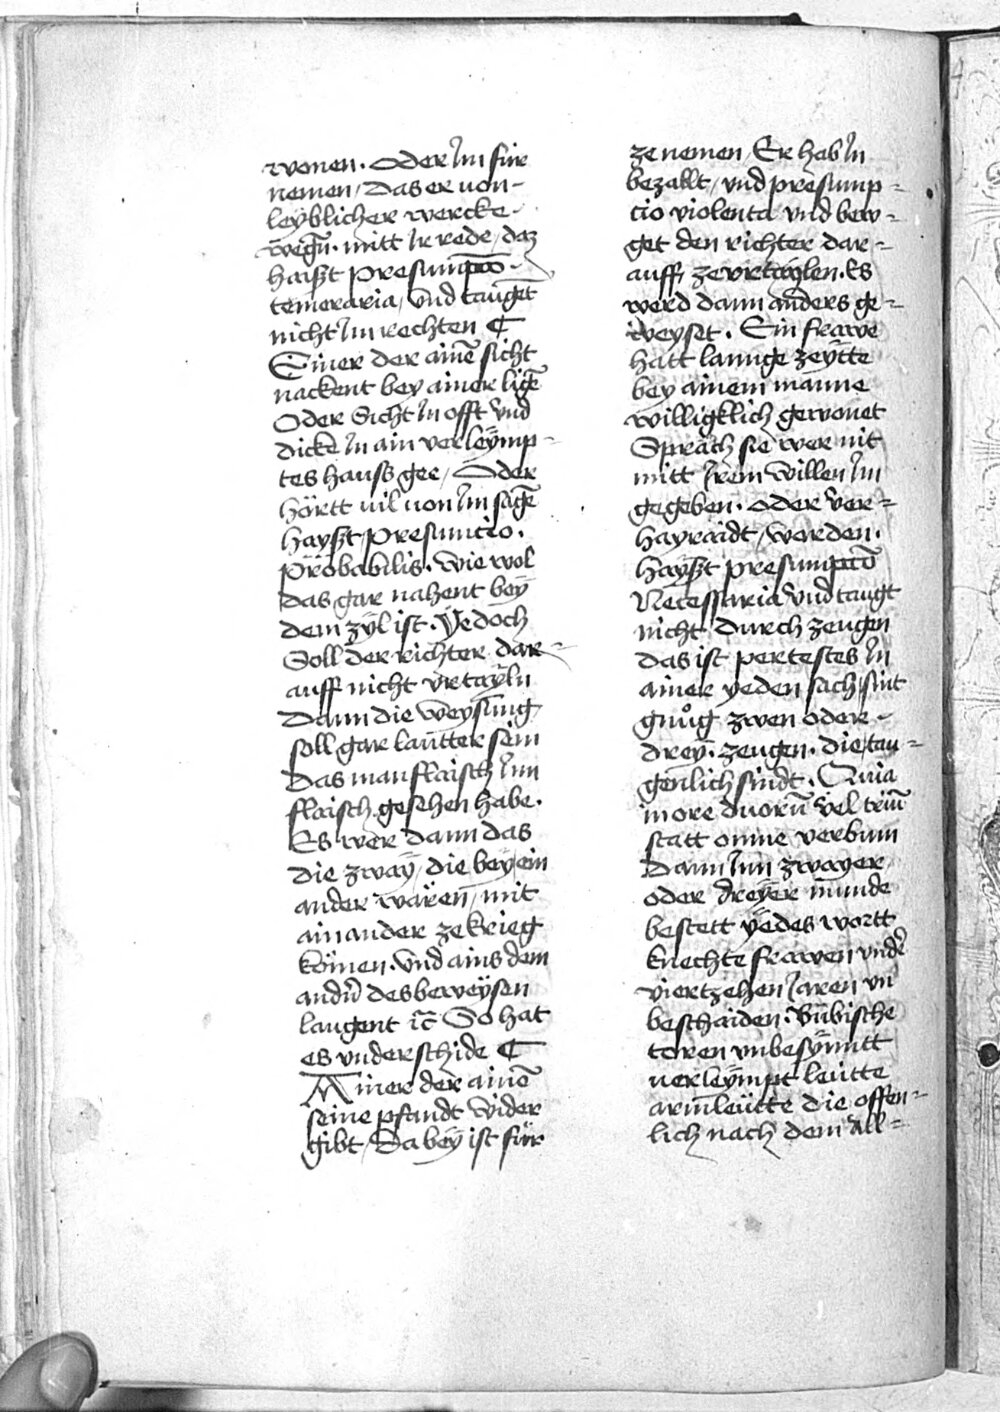 wonen. Oder Im für
nemen / Das er von
leyblicher wercke
wegn̄. mitt Ir rede / daz
haißt presumpco̅
temeraria / vnd tauget
nicht Im rechten ¶
Einer der ainē sicht
nackent bey ainer ligē
Oder Sicht In offt vnd
dicke In ain verleymp=
tes hauss gee / Oder
hörtt vil von Im sagē
hayßt / presumcio.
Probabilis. Wie wol
das gar nahent bey
dem zyl ist. Yedoch
Soll der richter dar=
auff nicht vrtayln
Dann die weysung
soll gar lautter sein
Das man flaisch Inn
flaisch gesehen habe.
Es wer dann das
die zway / die bey ein
ander wären / mit
ainander ze krieg
kömen. Vnd ains dem
andn̄ des beweysen
laugent ic̄ So hat
es vnderschide ¶
Ainer der ainē
seine pfandt wider
gibt / Da bey ist für
ze nemen / Er hab In
bezallt / vnd presump=
cio violenta vnd bew=
get den richter dar=
auff ze vrtaylen. Es
werd dann anders ge=
weyset. Ein frawe
hatt lannge zeytte
bey ainem manne
willigklich gewonet
Spräch sie wer nit
mitt Irem willen Im
gegeben. Oder ver=
hayraidt / worden.
hayßt presumpco̅
Necessaria Vnd taugt
nicht durch zeugen
das ist per testes In
ainer yeden sach sint
gnůg zwen oder
drey. zeugen. die tau=
genlich sindt. Quia
in ore duorū vel triū
statt omne verbum
Dann Inn zwayer
oder dreyer munde
bestett yedes wortt
knechte frawen vnd̾
viertzehen Iaren vn
beschaiden. Bübische
toren vnbesynntt
verleympt leutte
armleütte die offen=
lich nach dem All=